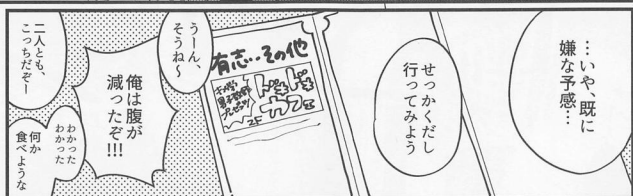 …いや、既に
嫌な予感…
せっかくだし
行ってみよう
有志・・その他
ドキドキ
カフェ
2F
うーん、
そうね〜
俺は腹が
減ったぞ!!!
わかった
わかった
何か
食べような
二人とも、
こっちだぞー